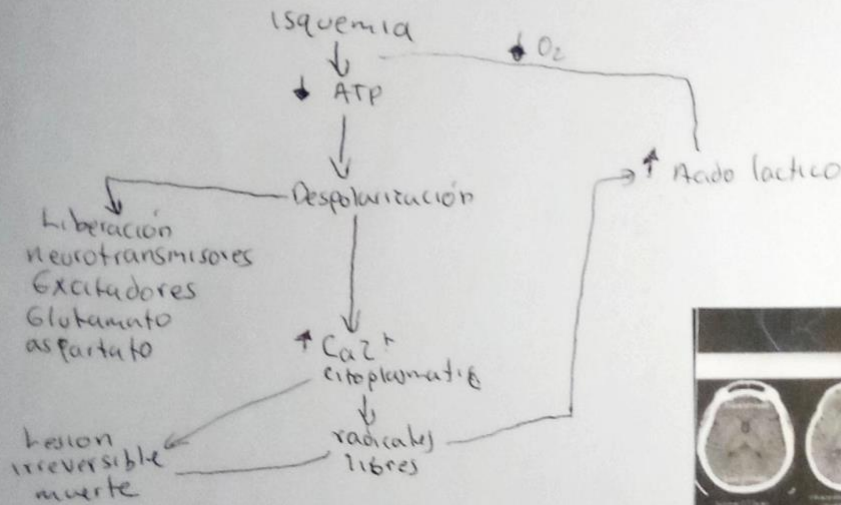 Isquemia
↓ O2
↓ ATP
↑ Acido lactico
Despolarización
Liberación
neurotransmisores
Excitadores
Glutamato
aspartato
↑ Ca2+
citoplasmatic
radicales
libres
Lesion
irreversible
muerte